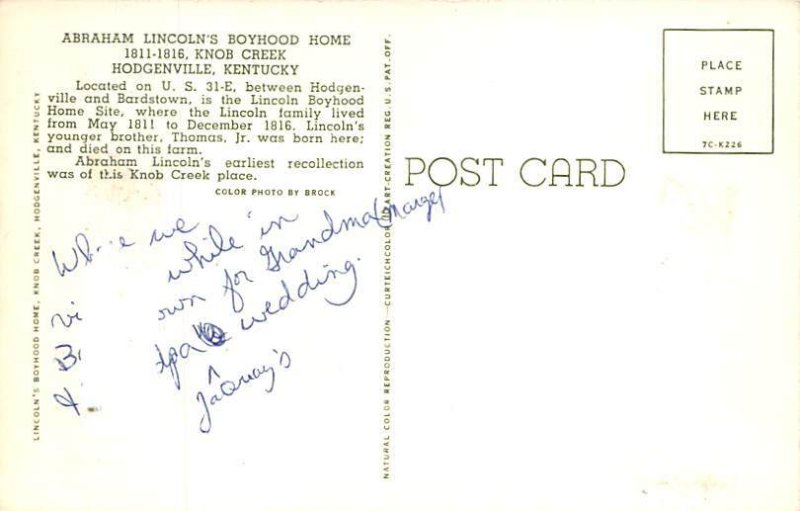 ABRAHAM LINCOLN'S BOYHOOD HOME
1811-1816, KNOB CREEK
HODGENVILLE, KENTUCKY
Located on U. S. 31-E, between Hodgen-
ville and Bardstown, is the Lincoln Boyhood
Home Site, where the Lincoln family lived
from May 1811 to December 1816. Lincoln's
younger brother, Thomas, Jr. was born here;
and died on this farm.
Abraham Lincoln's earliest recollection
was of this Knob Creek place.
COLOR PHOTO BY BROCK
LINCOLN'S BOYHOOD HOME, KNOB CREEK, HODGENVILLE, KENTUCKY
we
while in
own for Grandma &
wedding.
NATURAL COLOR REPRODUCTION—CURTEICHCOLOR ART-CREATION REG. U.S. PAT. OFF.
POST CARD
PLACE
STAMP
HERE
7C-K226